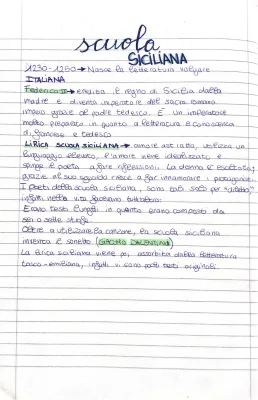 scuola
SICILIANA
1230-1250 → Nasce la letteratura volgare
ITALIANA
Federico II → eredita il regno di Sicilia dalla
madre e diventa imperatore del sacro romano
impero grazie al padre tedesco. È un imperatore
molto preparato in quanto a letteratura e conoscenza
di francese e tedesco
LIRICA SCUOLA SICILIANA → amore astratto, utilizza un
linguaggio elevato, l'amore viene idealizzato e
spinge il poeta a fare riflessioni. La donna è esaltata;
grazie al suo sguardo riesce a far innamorare i protagonisti.
I poeti della scuola siciliana, sono tali solo per "diletto"
infatti nella vita facevano tutt'altro.
Erano testi lunghi in quanto erano composti da
sei o sette stanze.
Oltre a utilizzare la canzone, la scuola siciliana
inventa il sonetto (GIACOMO DA LENTINI)
La lirica siciliana viene poi assorbita dalla letteratura
tosco-emiliana, infatti vi sono pochi testi originali.